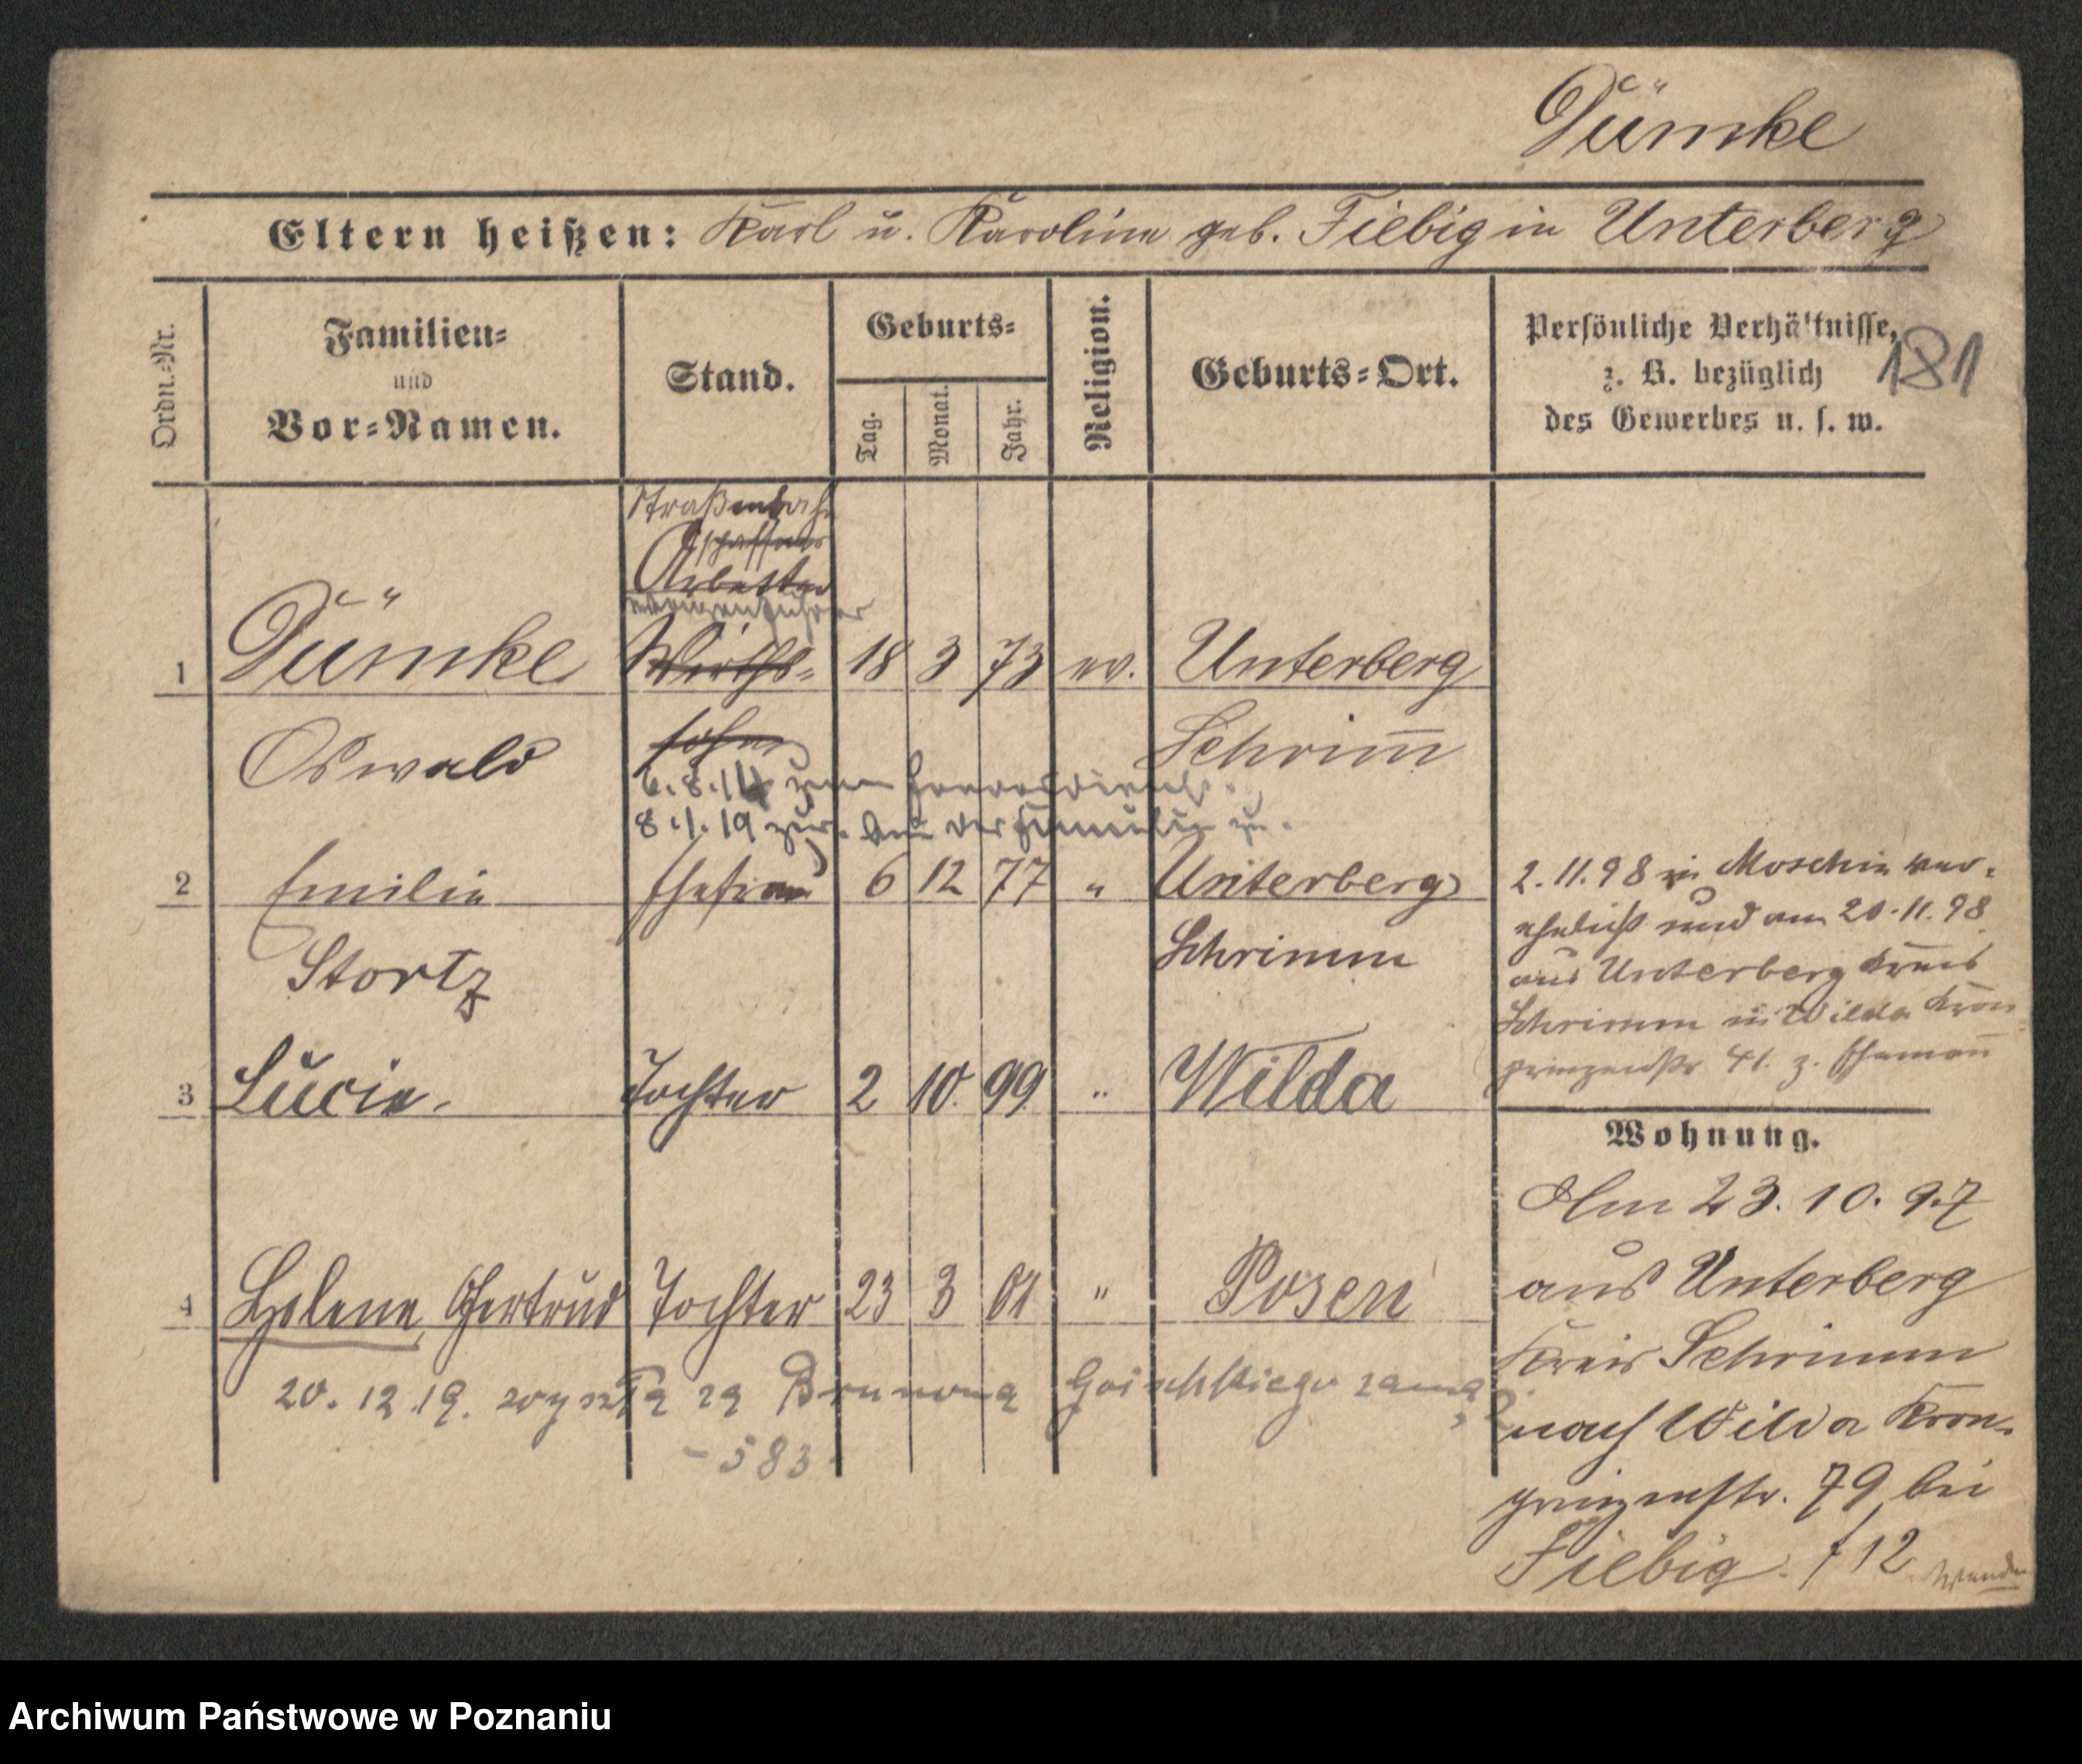 Dümke
Eltern heißen: Karl u. Karoline geb. Fiebig in Unterberg
Ordn.-Nr.
Familien-
und
Vor-Namen.
Stand.
Geburts-
Tag.
Monat.
Jahr.
Religion.
Geburts-Ort.
Persönliche Verhältnisse,
z. B. bezüglich
des Gewerbes u. s. w.
181
Straßenbahn
schaffner
Arbeiter
Wagenführer
1 Dümke Wirths- 18 3 73 ev. Unterberg
Oswald sohn Schrim̅
6.8.14 zum Heeresdienst.
8.1.19 zur. von der Familie zu.
2 Emilie Ehefrau 6 12 77 " Unterberg
Stortz Schrimm
2.11.98 in Moschin ver-
ehelicht und am 20.11.98
aus Unterberg Kreis
Schrimm in Wilda Kron
prinzenstr 41. z. Ehemañ
3 Lucie. Tochter 2 10. 99 " Wilda
4 Helene, Gertrud Tochter 23 3 01 " Posen
20.12.19. wyszła za Brunona
- 583
Wohnung.
Am 23.10.97
aus Unterberg
Kreis Schrimm
nach Wilda Kron-
prinzenstr. 79 bei
Fiebig. f 12 wenden
Archiwum Państwowe w Poznaniu